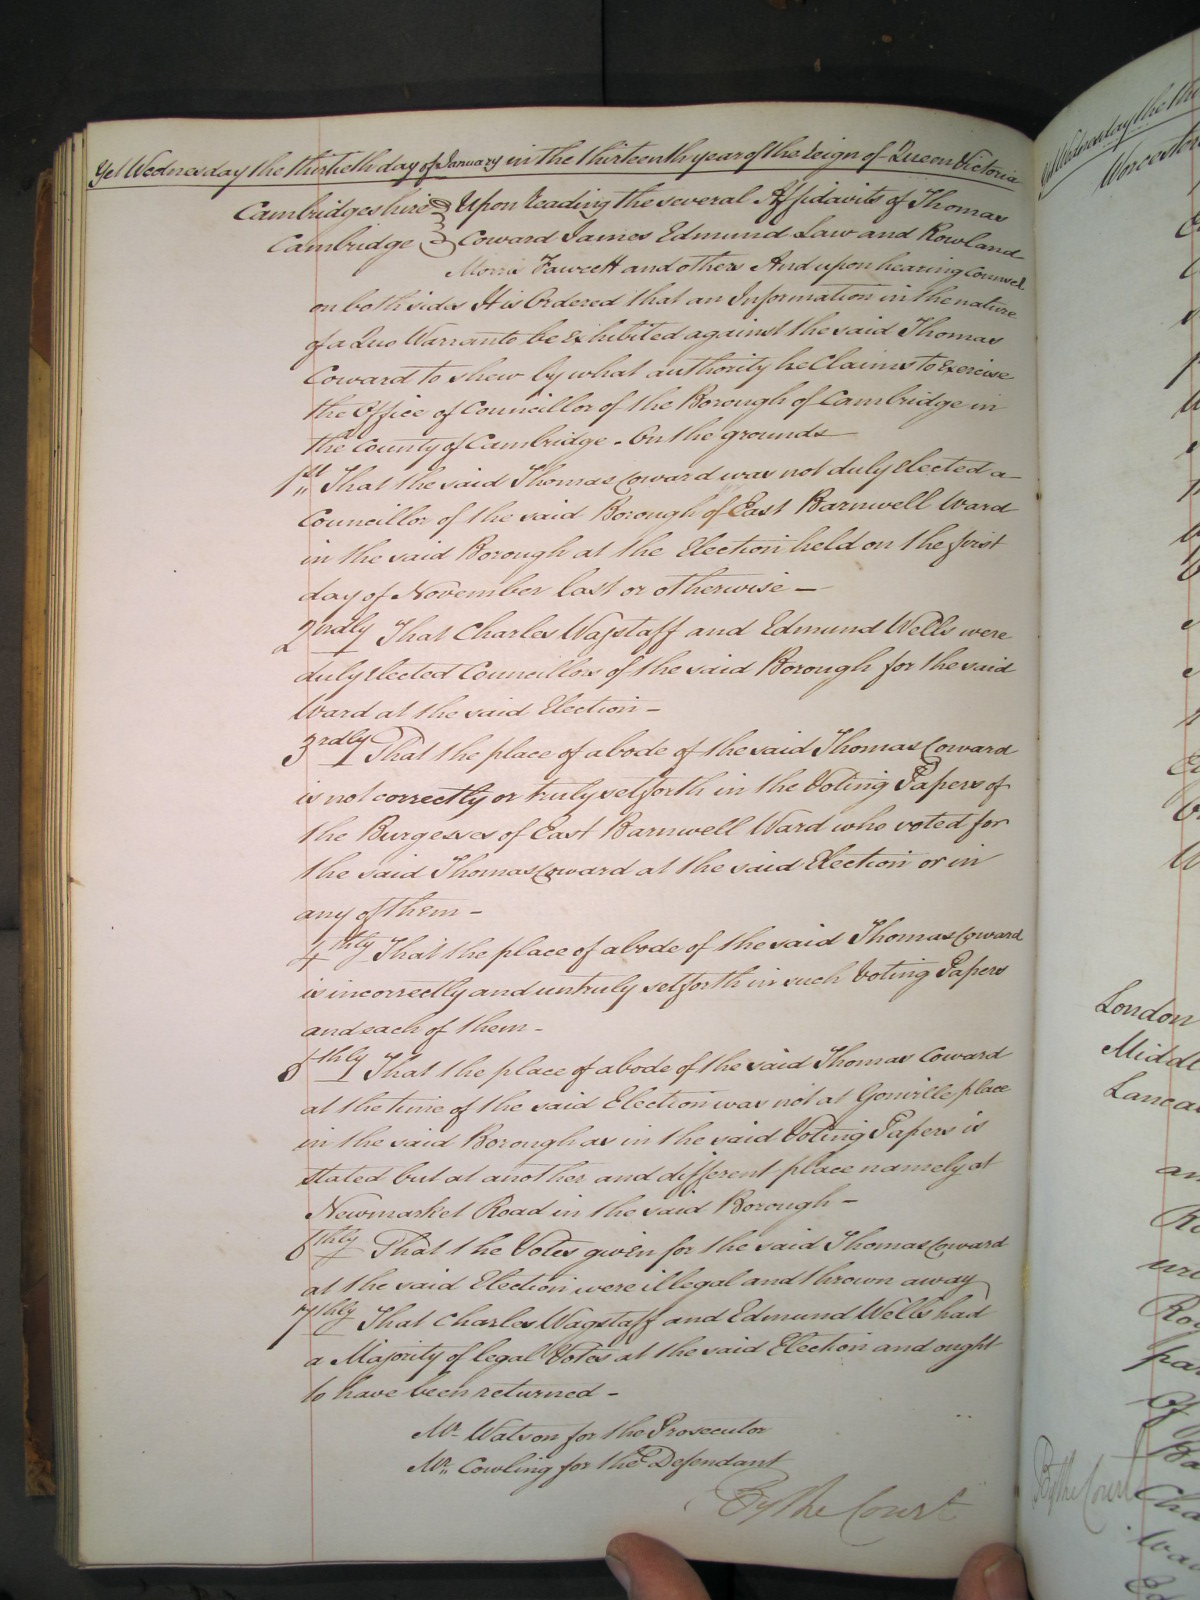 Yet Wednesday the thirtieth day of January in the thirteenth year of the reign of Queen Victoria
Cambridgeshire Upon reading the several Affidavits of Thomas
Cambridge Coward James Edmund Law and Rowland
Morris Fawcett and others And upon hearing Counsel
on both sides It is Ordered that an Information in the nature
of a Quo Warranto be Exhibited against the said Thomas
Coward to shew by what authority he Claims to Exercise
the Office of Councillor of the Borough of Cambridge in
the County of Cambridge. On the grounds
1st That the said Thomas Coward was not duly Elected a
Councillor of the said Borough of East Barnwell Ward
in the said Borough at the Election held on the first
day of November last or otherwise —
2ndly That Charles Wagstaff and Edmund Wells were
duly Elected Councillors of the said Borough for the said
Ward at the said Election —
3rdly That the place of abode of the said Thomas Coward
is not correctly or truly set forth in the Voting Papers of
the Burgesses of East Barnwell Ward who voted for
the said Thomas Coward at the said Election or in
any of them —
4thly That the place of abode of the said Thomas Coward
is incorrectly and untruly set forth in such Voting Papers
and each of them —
5thly That the place of abode of the said Thomas Coward
at the time of the said Election was not at Gonville place
in the said Borough as in the said Voting Papers is
stated but at another and different place namely at
Newmarket Road in the said Borough —
6thly That the Votes given for the said Thomas Coward
at the said Election were illegal and thrown away
7thly That Charles Wagstaff and Edmund Wells had
a Majority of legal Votes at the said Election and ought
to have been returned —
Mr. Watson for the Prosecutor
Mr. Cowling for the Defendant
By the Court
Wednesday the
London
By the Court